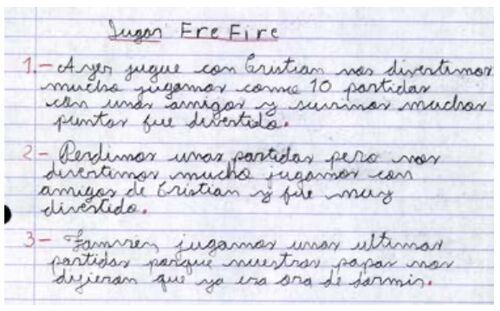 Jugar Fre Fire
1.- Ayer jugue con Cristian nos divertimos
mucho jugamos como 10 partidas
con unos amigos y suvimos muchos
puntos fue divertido.
2- Perdimos unas partidas pero nos
divertimos mucho jugamos con
amigos de Cristian y fue muy
divertido.
3- Tamvien jugamos unas ultimas
partidas porque nuestros papas nos
dijieran que ya era ora de dormir.